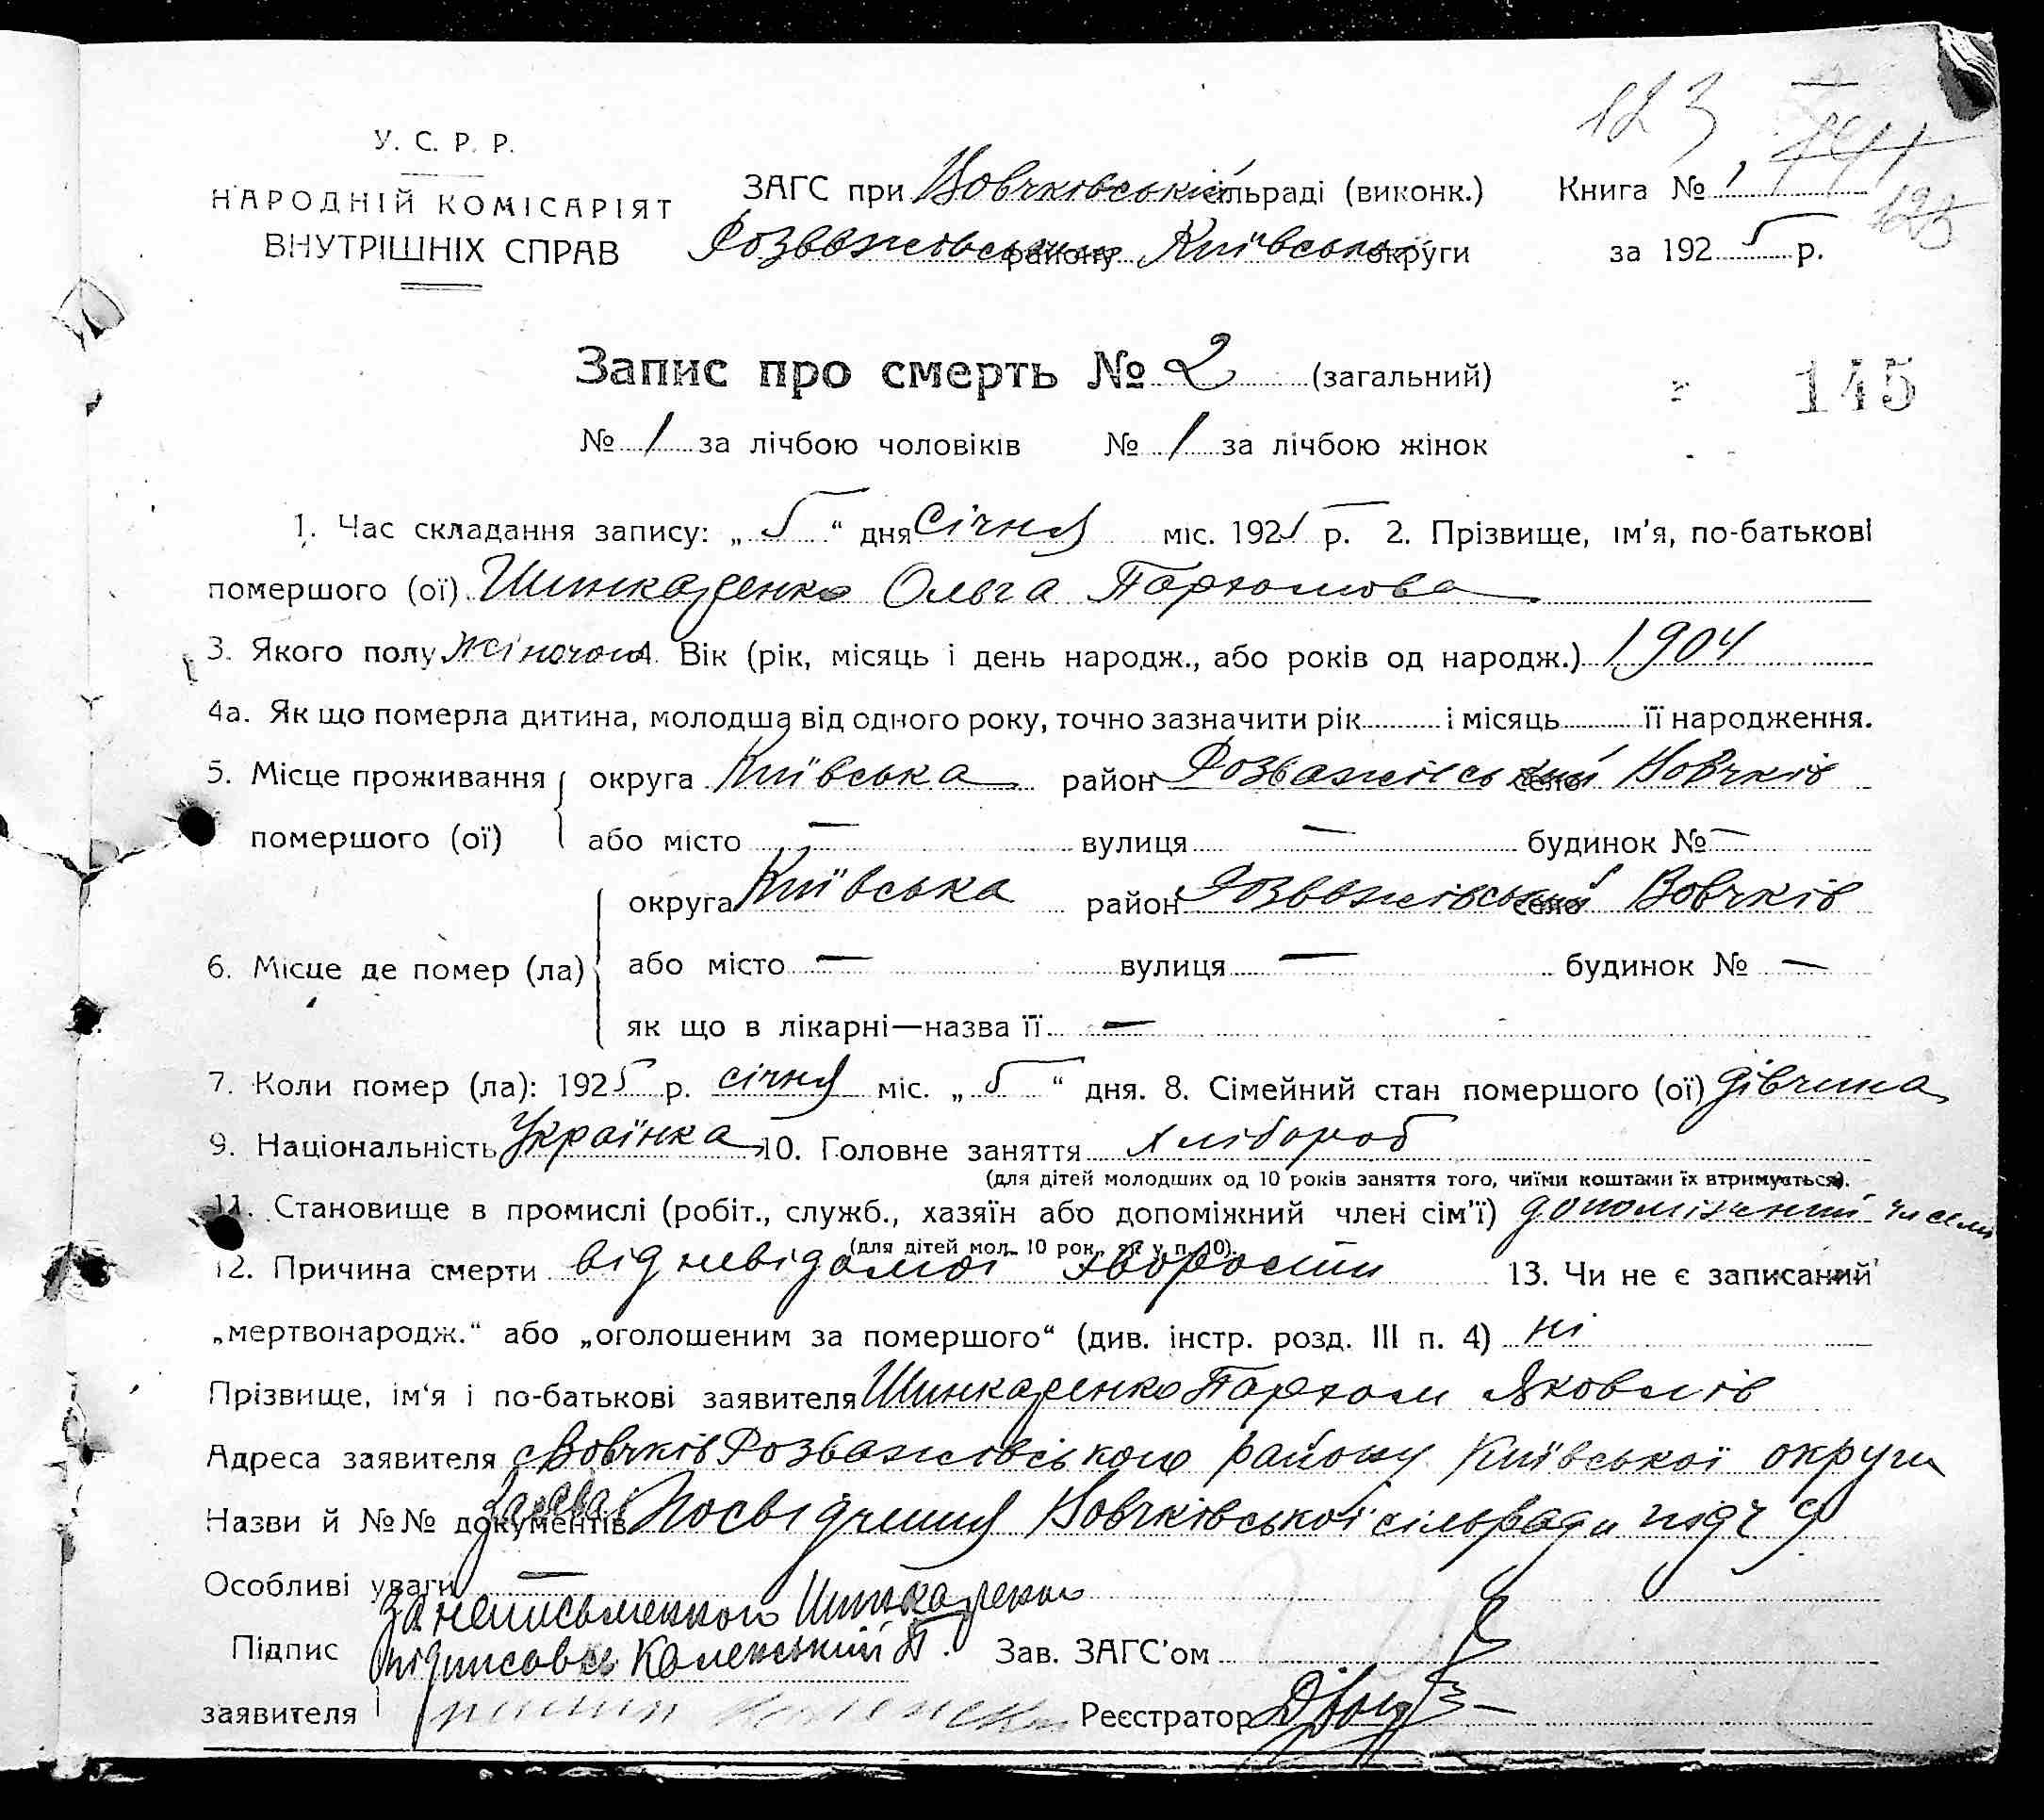 123
141
125
У. С. Р. Р.
НАРОДНІЙ КОМІСАРІЯТ
ВНУТРІШНІХ СПРАВ
ЗАГС при Вовчківській сільраді (виконк.) Книга № 1
Розважівського району Київської округи за 1925 р.
Запис про смерть № 2 (загальний)
145
№ 1 за лічбою чоловіків № 1 за лічбою жінок
1. Час складання запису: „5“ дня Січня міс. 1925 р. 2. Прізвище, ім'я, по-батькові
помершого (ої) Шинкаренко Ольга Пархомова
3. Якого полу жіночого 4. Вік (рік, місяць і день народж., або років од народж.) 1904
4а. Як що померла дитина, молодша від одного року, точно зазначити рік і місяць її народження.
5. Місце проживання помершого (ої) округа Київська район Розважівський село Вовчків
або місто — вулиця — будинок № —
6. Місце де помер (ла) округа Київська район Розважівський село Вовчків
або місто — вулиця — будинок № —
як що в лікарні—назва її —
7. Коли помер (ла): 1925 р. січня міс. „5“ дня. 8. Сімейний стан помершого (ої) дівчина
9. Національність Українка 10. Головне заняття хлібороб
(для дітей молодших од 10 років заняття того, чиїми коштами їх втримується).
11. Становище в промислі (робіт., служб., хазяїн або допоміжний член сім'ї) допоміжний чл семи
(для дітей мол. 10 рок. як у п. 10).
12. Причина смерти від невідомої хворости 13. Чи не є записаний
„мертвонародж.“ або „оголошеним за помершого“ (див. інстр. розд. III п. 4) ні
Прізвище, ім'я і по-батькові заявителя Шинкаренко Пархом Яковлів
Адреса заявителя с Вовчків Розважівського району Київської округи
Назви й №№ документів заява Посвідчення Вовчківської сільради під ч 9
Особливі уваги —
За неписьменного Шинкаренко
Підпис підписавсь Каленський П. Зав. ЗАГС'ом
заявителя Реєстратор